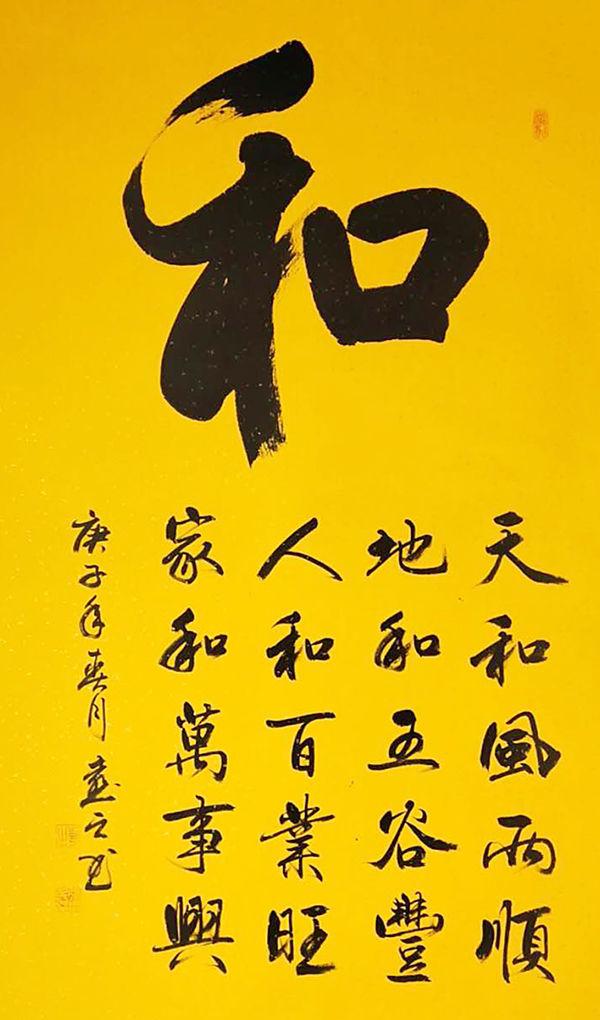 和
天和風雨順
地和五谷豐
人和百業旺
家和萬事興
庚子年春月